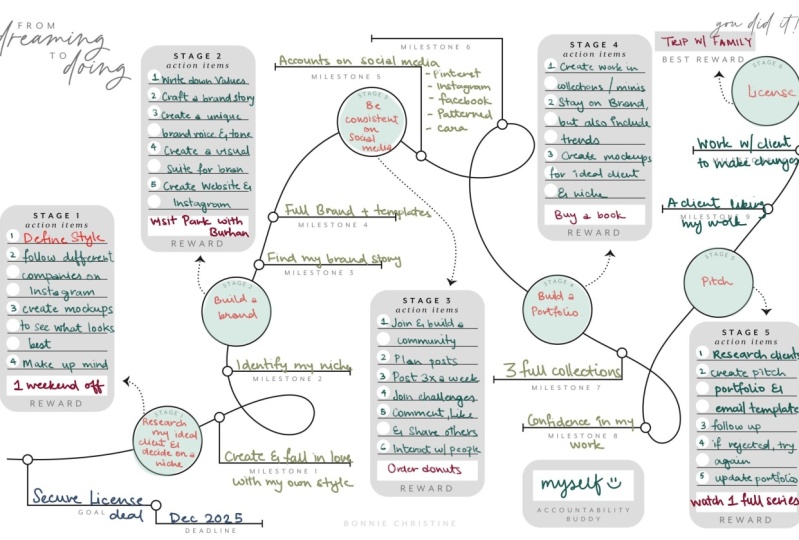 FROM
dreaming
TO
doing
STAGE 2
action items
1 Write down Values
2 Craft a brand story
3 Create a unique
brand voice & tone
4 Create a visual
suite for bran
5 Create Website &
Instagram
Visit Park with
Burhan
REWARD
MILESTONE 6
Accounts on social media
MILESTONE 5
- Pinterest
- Instagram
- facebook
- Patterned
- cara
STAGE 3
Be
consistent
on
Social
media
STAGE 4
action items
1 Create work in
collections / minis
2 Stay on Brand,
but also include
trends
3 Create mockups
for ideal client
& niche
Buy a book
REWARD
you did it!
TRIP W/ FAMILY
BEST REWARD
STAGE 6
License
Work w/ client
to make changes
A client liking
MILESTONE 9
my work
STAGE 1
action items
1 Define Style
2 follow different
companies on
Instagram
3 create mockups
to see what looks
best
4 Make up mind
1 weekend off
REWARD
Full Brand + templates
MILESTONE 4
Find my brand story
MILESTONE 3
STAGE 2
Build a
brand
Identify my niche
MILESTONE 2
STAGE 1
Research
my ideal
client &
decide on a
niche
Create & fall in love
MILESTONE 1
with my own style
STAGE 3
action items
1 Join & build a
community
2 Plan posts
3 Post 3x a week
4 Join challenges
5 Comment, Like
& Share others
6 Interact w/ people
Order donuts
REWARD
STAGE 4
Build a
Portfolio
3 full collections
MILESTONE 7
Confidence in my
MILESTONE 8
work
STAGE 5
Pitch
STAGE 5
action items
1 Research clients
2 create pitch
portfolio &
email template
3 follow up
4 if rejected, try
again
5 update portfolio
watch 1 full series
REWARD
myself
ACCOUNTABILITY
BUDDY
Secure License
GOAL
deal
Dec 2025
DEADLINE
BONNIE CHRISTINE